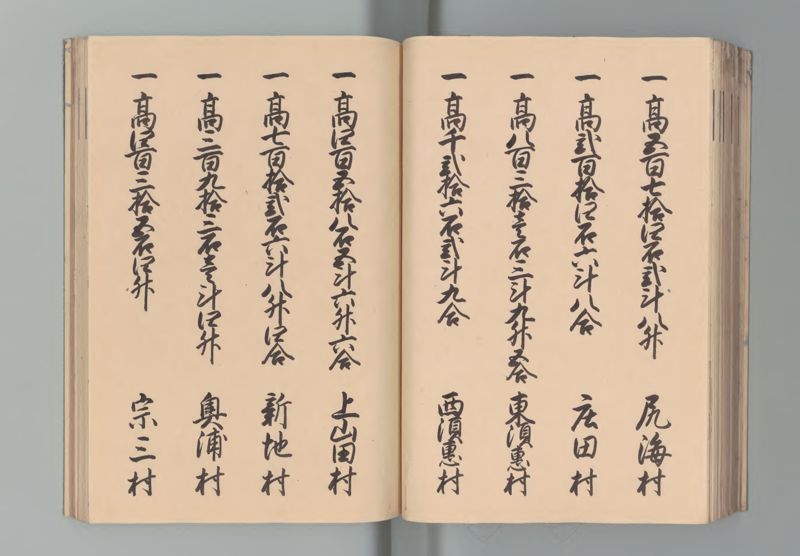 一 高五百七拾四石弐斗八升 尻海村
一 高弐百拾四石六斗八合 庄田村
一 高八百三拾壱石三斗九升五合 東須惠村
一 高千弐拾六石弐斗九合 西須惠村
一 高四百五拾八石五斗六升六合 上山田村
一 高七百拾弐石六斗八升四合 新地村
一 高二百九拾二石壱斗四升 奥浦村
一 高四百三拾五石四升 宗三村